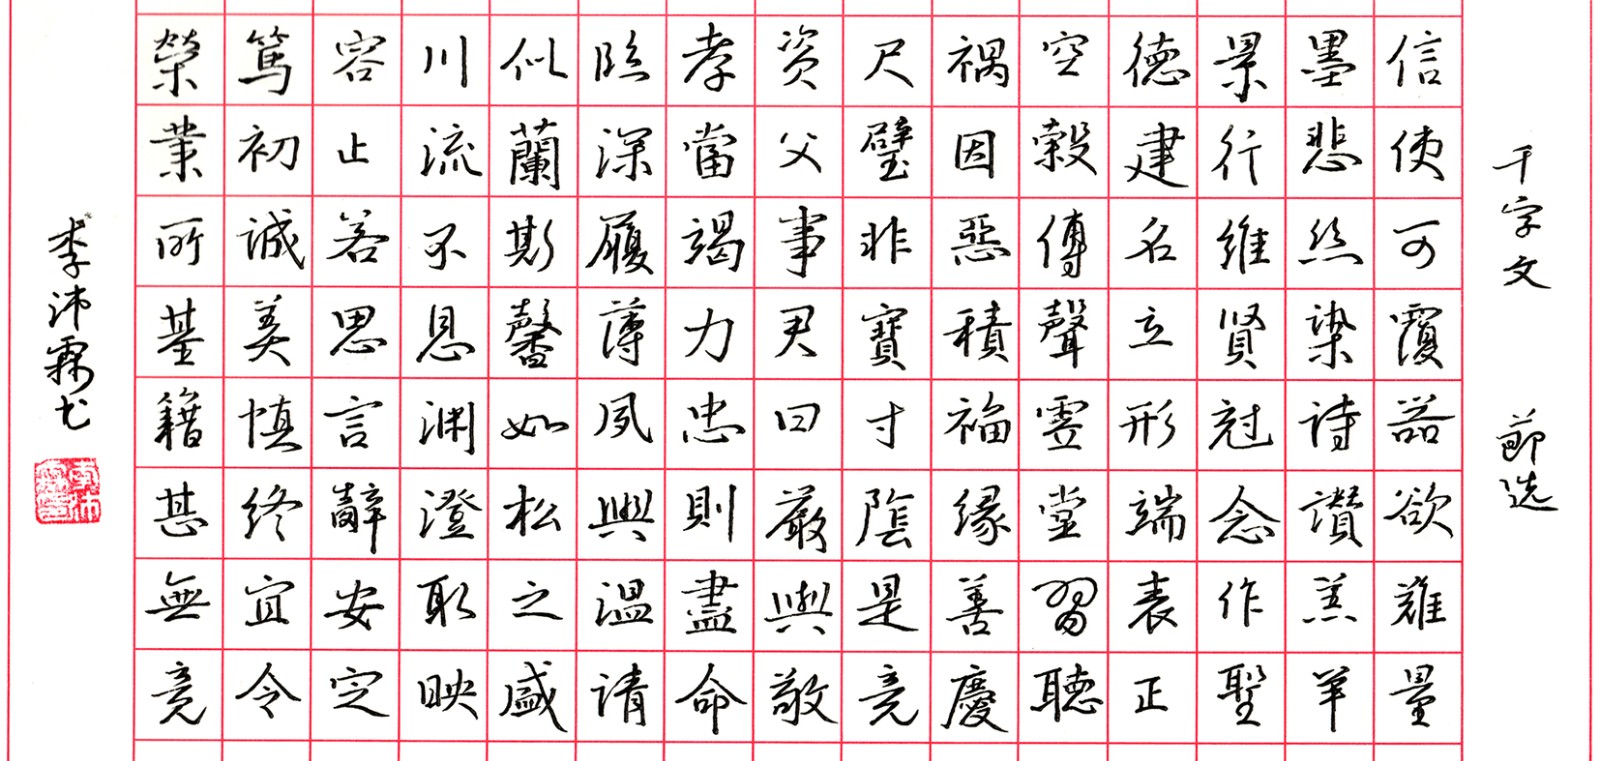 千字文 節选
信使可覆器欲難量
墨悲絲染詩讚羔羊
景行維賢尅念作聖
德建名立形端表正
空穀傳聲虛堂習聽
禍因惡積福緣善慶
尺璧非寶寸陰是竞
資父事君曰嚴與敬
孝當竭力忠則盡命
臨深履薄夙興温清
似蘭斯馨如松之盛
川流不息渊澄取映
容止若思言辭安定
篤初誠美慎終宜令
榮業所基籍甚無竟
李沛霖书